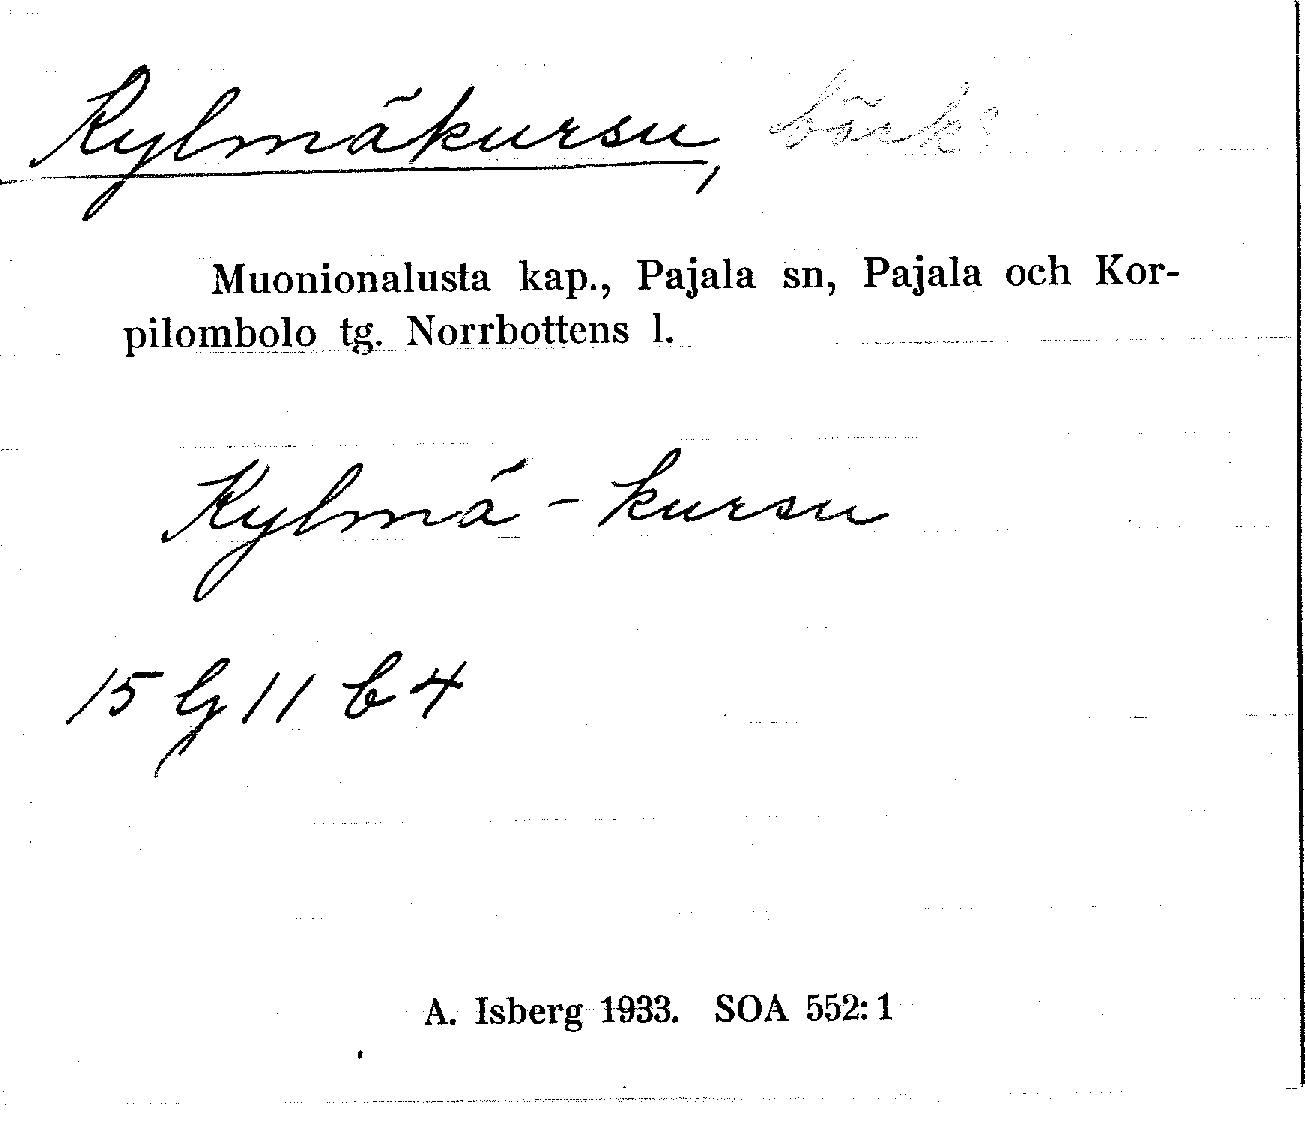 Kylmäkursu, bäck?
Muonionalusta kap., Pajala sn, Pajala och Kor-
pilombolo tg. Norrbottens l.
Kylmä-kursu
15 G 11 b 4
A. Isberg 1933. SOA 552:1